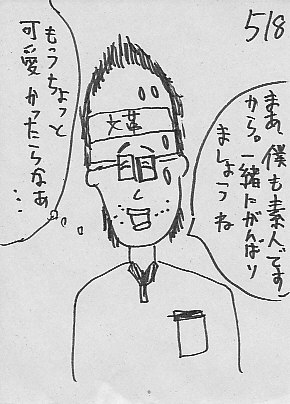 5/8
まあ、僕も素人です
から。一緒にがんばり
ましょうね
もうちょっと
可愛かったらなあ
…